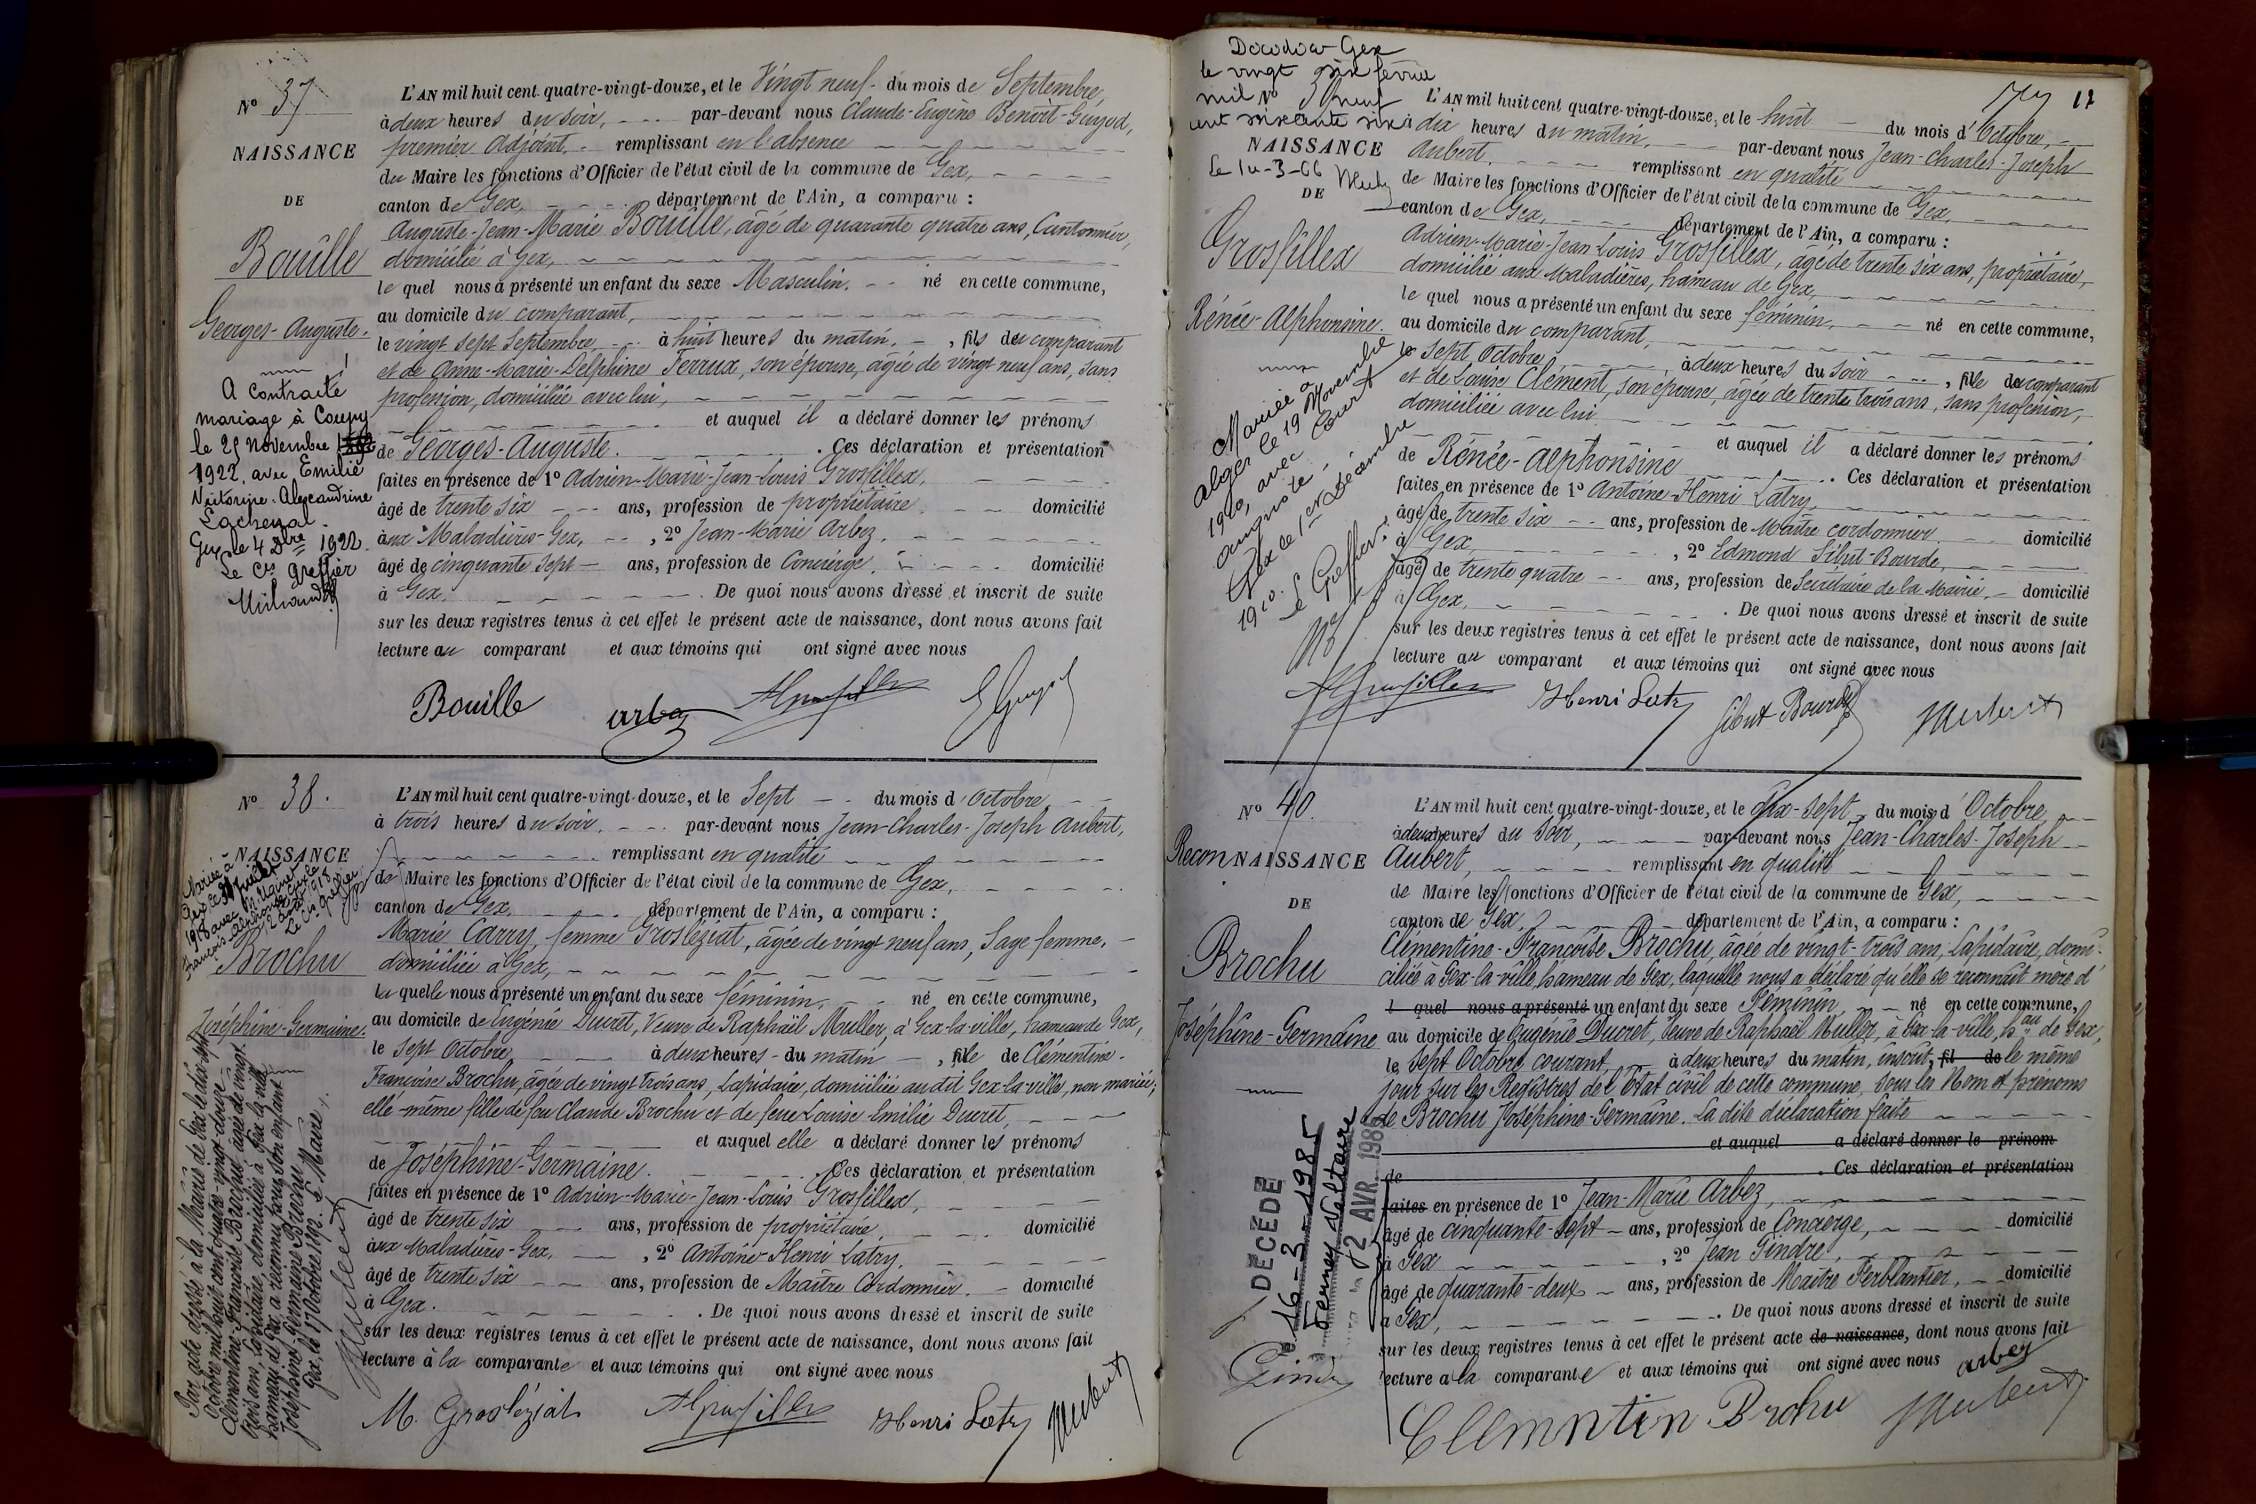 Nº 37
NAISSANCE
DE
Bouille
Georges-Auguste.
A contracté
mariage à Coupy
le 25 Novembre
1922, avec Emilie
Victorine-Alexandrine
Lachenal.
Gex le 4 Xbre 1922.
Le Cis Greffier
L'AN mil huit cent quatre-vingt-douze, et le Vingt neuf du mois de Septembre,
à deux heures du soir, par-devant nous Claude-Eugène Benoit-Guyod,
premier Adjoint, remplissant en l'absence
du Maire les fonctions d'Officier de l'état civil de la commune de Gex,
canton de Gex, département de l'Ain, a comparu :
Auguste-Jean-Marie Bouille, âgé de quarante quatre ans, Cantonnier,
domicilié à Gex,
le quel nous a présenté un enfant du sexe Masculin. né en cette commune,
au domicile du comparant,
le vingt sept Septembre, à huit heures du matin, , fils du comparant
et de Anne-Marie-Delphine Ferrux, son épouse, âgée de vingt neuf ans, sans
profession, domiciliée avec lui,
et auquel il a déclaré donner les prénoms
de Georges-Auguste. . Ces déclaration et présentation
faites en présence de 1º Adrien-Marie-Jean-Louis Grosfillex,
âgé de trente six ans, profession de propriétaire. domicilié
aux Maladières-Gex, , 2º Jean-Marie Arbez,
âgé de cinquante sept ans, profession de Concierge, domicilié
à Gex. . De quoi nous avons dressé et inscrit de suite
sur les deux registres tenus à cet effet le présent acte de naissance, dont nous avons fait
lecture au comparant et aux témoins qui ont signé avec nous
Bouille arbez AGrosfillex EGuyod
Nº 38.
NAISSANCE
Mariée à
Gex le Juillet
1918 avec
François-Alphonse
2 Août 1918
Le Cis greffier
Brochu
Joséphine-Germaine.
Par acte dressé à la Mairie de Gex le dix-sept
Octobre mil huit cent quatre-vingt-douze
Clémentine-Françoise Brochu, âgée de vingt
trois ans, lapidaire, domiciliée à Gex-la-ville
hameau de Gex, a reconnu pour son enfant
Joséphine-Germaine Brochu
Gex, le 17 Octobre 1892. Le Maire,
JAubert
L'AN mil huit cent quatre-vingt-douze, et le Sept du mois d'Octobre,
à trois heures du soir, par-devant nous Jean-Charles-Joseph Aubert,
remplissant en qualité
de Maire les fonctions d'Officier de l'état civil de la commune de Gex,
canton de Gex, département de l'Ain, a comparu :
Marie Carry, femme Grosléziat, âgée de vingt neuf ans, Sage femme,
domiciliée à Gex,
la quelle nous a présenté un enfant du sexe féminin, né en cette commune,
au domicile de Eugénie Ducret, Veuve de Raphaël Muller, à Gex-la-ville, hameau de Gex,
le Sept Octobre, à deux heures du matin , fille de Clémentine-
Françoise Brochu, âgée de vingt trois ans, Lapidaire, domiciliée au dit Gex-la-ville, non mariée;
elle-même fille de feu Claude Brochu et de feue Louise Emilie Ducret,
et auquel elle a déclaré donner les prénoms
de Joséphine-Germaine. . Ces déclaration et présentation
faites en présence de 1º Adrien-Marie-Jean-Louis Grosfillex,
âgé de trente six ans, profession de propriétaire, domicilié
aux Maladières-Gex, , 2º Antoine-Henri Latry,
âgé de trente six ans, profession de Maître Cordonnier. domicilié
à Gex. . De quoi nous avons dressé et inscrit de suite
sur les deux registres tenus à cet effet le présent acte de naissance, dont nous avons fait
lecture à la comparante et aux témoins qui ont signé avec nous
M. Grosléziat AGrosfillex Henri Latry JAubert
le vingt six février
mil neuf
cent soixante six
Nº 39
NAISSANCE
Le 14-3-66
DE
Grosfillex
Rénée-Alphonsine.
Mariée à
Alger le 19 Novembre
1920, avec Court
Gex le 1er Décembre
1920. Le Greffier:
12
L'AN mil huit cent quatre-vingt-douze, et le huit du mois d'Octobre,
à dix heures du matin, par-devant nous Jean-Charles-Joseph
Aubert, remplissant en qualité
de Maire les fonctions d'Officier de l'état civil de la commune de Gex,
canton de Gex, département de l'Ain, a comparu :
Adrien-Marie-Jean-Louis Grosfillex, âgé de trente six ans, propriétaire,
domicilié aux Maladières, hameau de Gex,
le quel nous a présenté un enfant du sexe féminin, né en cette commune,
au domicile du comparant,
le Sept Octobre, à deux heures du soir , fille du comparant
et de Louise Clément, son épouse, âgée de trente trois ans, sans profession,
domiciliée avec lui
et auquel il a déclaré donner les prénoms
de Rénée-Alphonsine . Ces déclaration et présentation
faites en présence de 1º Antoine-Henri Latry,
âgé de trente six ans, profession de Maître cordonnier. domicilié
à Gex, , 2º Edmond Sibut-Bourde,
âgé de trente quatre ans, profession de Secrétaire de la Mairie, domicilié
à Gex, . De quoi nous avons dressé et inscrit de suite
sur les deux registres tenus à cet effet le présent acte de naissance, dont nous avons fait
lecture au comparant et aux témoins qui ont signé avec nous
AGrosfillex Henri Latry Sibut Bourde JAubert
Nº 40.
ReconNAISSANCE
DE
Brochu
Joséphine-Germaine
DÉCÉDÉ
16-3-1985
Ferney Voltaire
2 AVR. 1985
L'AN mil huit cent quatre-vingt-douze, et le Dix-sept du mois d'Octobre,
à deux heures du Soir, par-devant nous Jean-Charles-Joseph
Aubert, remplissant en qualité
de Maire les fonctions d'Officier de l'état civil de la commune de Gex,
canton de Gex, département de l'Ain, a comparu :
Clémentine-Françoise Brochu, âgée de vingt-trois ans, Lapidaire, domi-
ciliée à Gex-la-ville, hameau de Gex, laquelle nous a déclaré qu'elle se reconnaît mère d'
l quel nous a présenté un enfant du sexe Féminin né en cette commune,
au domicile de Eugénie Ducret, Veuve de Raphaël Muller, à Gex-la-ville, hau de Gex,
le Sept Octobre courant, à deux heures du matin, inscrit, fil de le même
jour sur les Registres de l'Etat civil de cette commune, sous les Nom et prénoms
de Brochu Joséphine-Germaine. La dite déclaration faite
et auquel a déclaré donner le prénom
de . Ces déclaration et présentation
faites en présence de 1º Jean-Marie Arbez,
âgé de cinquante-sept ans, profession de Concierge, domicilié
à Gex , 2º Jean Gindre,
âgé de quarante-deux ans, profession de Maître Ferblantier, domicilié
à Gex, . De quoi nous avons dressé et inscrit de suite
sur les deux registres tenus à cet effet le présent acte de naissance, dont nous avons fait
lecture à la comparante et aux témoins qui ont signé avec nous arbez
Gindre Clemntin Brohu JAubert